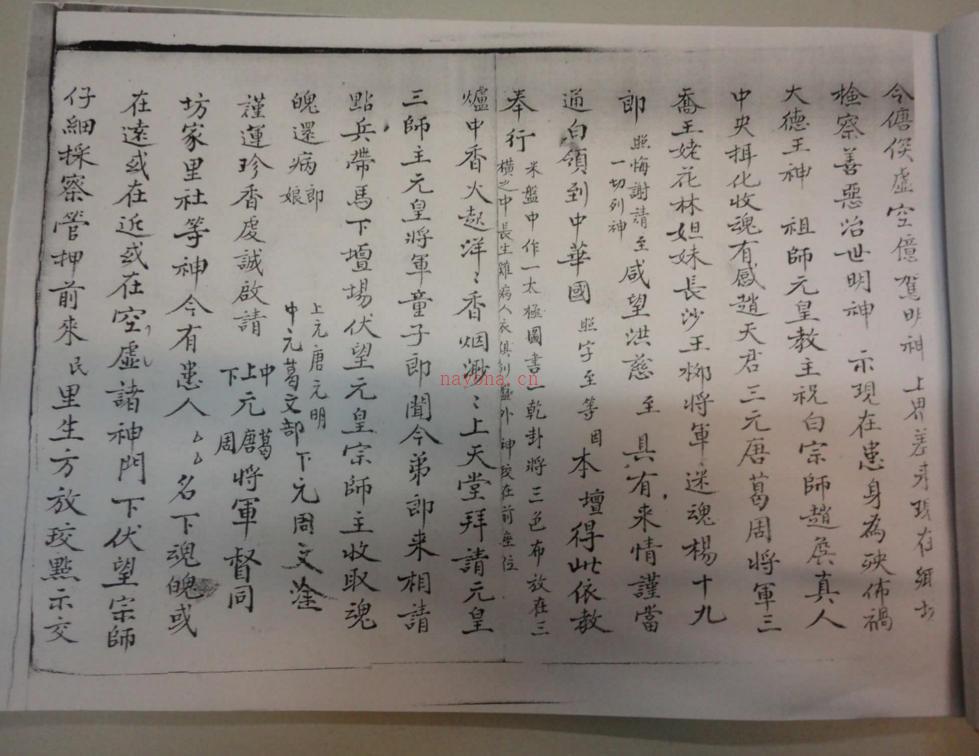 今僊侯虛空億駕明神 上界差來現在須知
檢察善惡治世明神 示現在患身為殃佈禍
大德王神 祖師元皇教主祝白宗師趙侯真人
中央押化收魂有感趙天君三元唐葛周將軍三
喬王姥花林姐妹長沙王柳將軍迷魂楊十九
郎 照悔謝請至一切列神 咸望洪慈 至 具有來情謹當
通白領到中華國 照字至等因 本壇得此依教
奉行 米盤中作一太極圖書一乾卦將三色布放在三
橫之中長生雞病人衣俱列盤外神位在前座位
爐中香火起洋〻香烟渺〻上天堂拜請元皇
三師主元皇將軍童子郎聞今弟郎來相請
點兵帶馬下壇場伏望元皇宗師主收取魂
魄還病郎娘 上元唐元明 中元葛文部 下元周文
謹運珍香虔誠啟請 上中下元唐葛周將軍督同
坊家里社等神今有患人 名下魂魄或
在遠或在近或在空虛諸神門下伏望宗師
仔細採察管押前來民里生方放珓點示交
nayona.cn